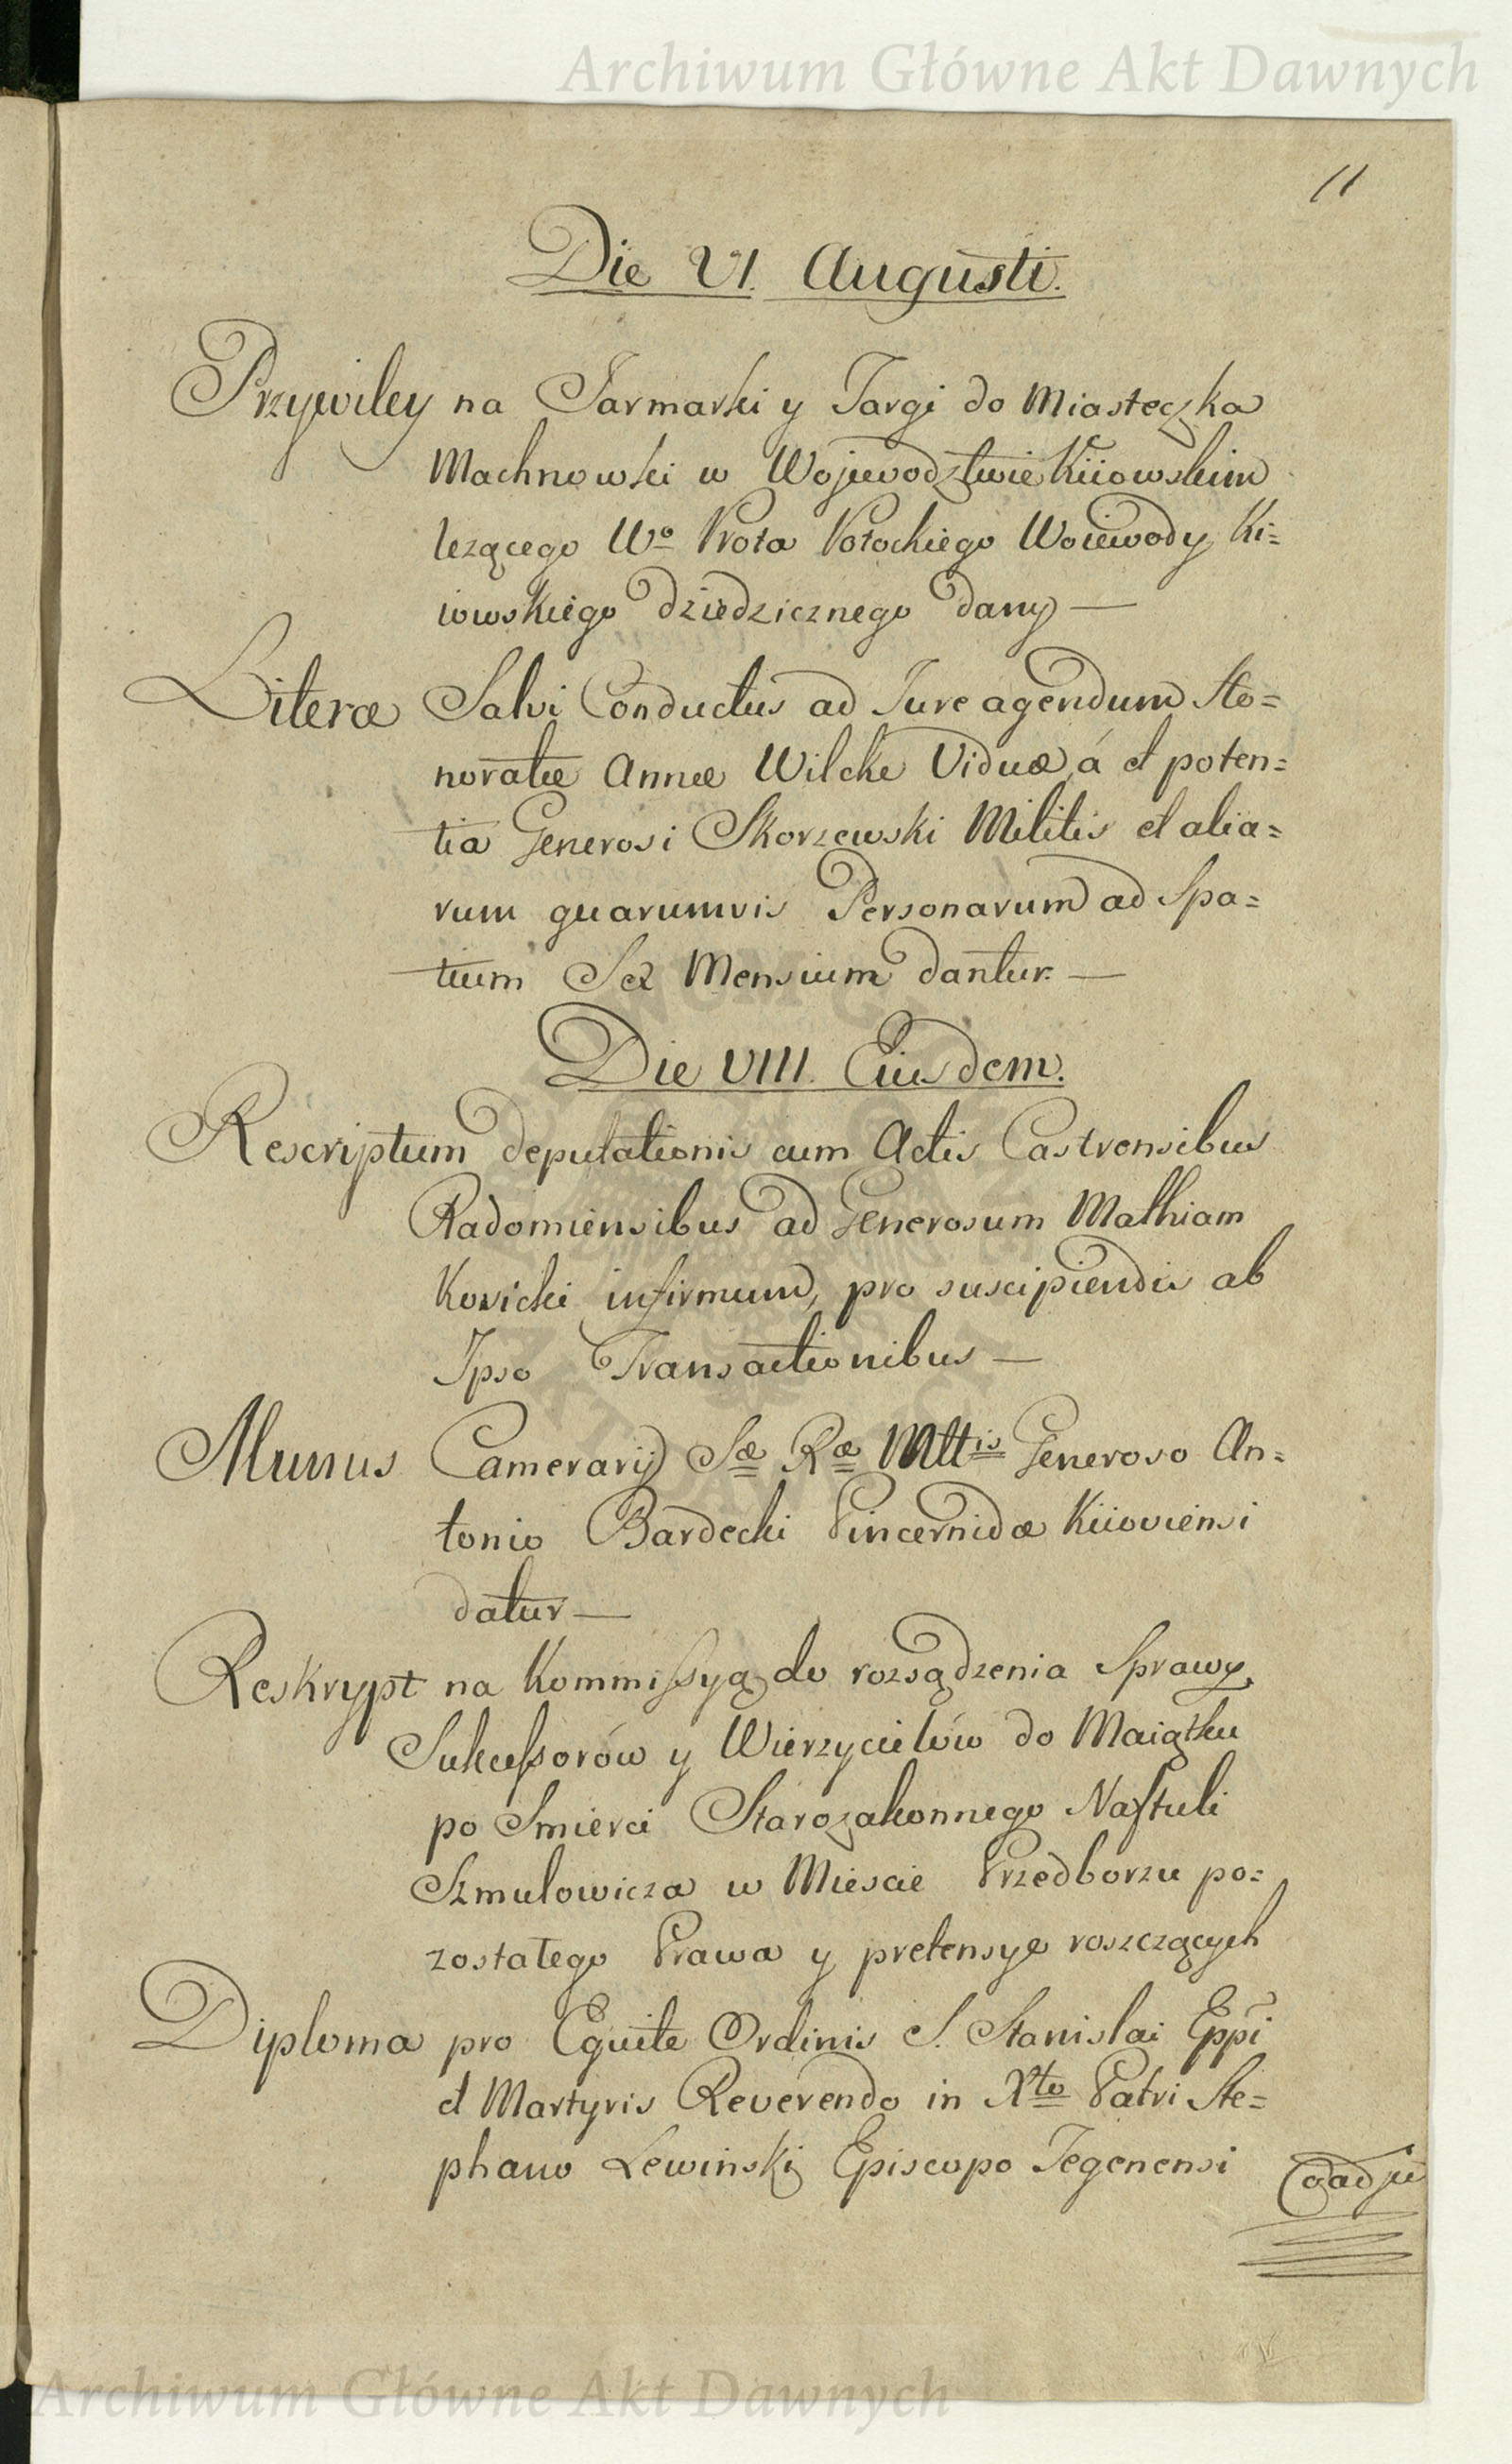 Archiwum Główne Akt Dawnych
11
Die VI. Augusti.
Przywiley na Jarmarki y Targi do Miasteczka
Machnowki w Wojewodztwie Kiiowskim
leżącego Wo Prota Potockiego Woiewody Ki=
iowskiego dziedzicznego dany —
Literæ Salvi Conductus ad Jure agendum Ho=
noratæ Annæ Wilcke Viduæ á et poten=
tia Generosi Skorzewski Militis et alia=
rum quarumvis Personarum ad Spa=
tium Sex Mensium dantur. —
Die VIII. Eiusdem.
Rescriptum deputationis cum Actis Castrensibus
Radomiensibus ad Generosum Mathiam
Kovicki infirmum, pro suscipiendis ab
Ipso Transactionibus —
Munus Camerarij Sæ Ræ Mttis Generoso An=
tonio Bardecki Pincernidæ Kiioviensi
datur —
Reskrypt na Kommissyą do rozsądzenia Sprawy
Sukcessorów y Wierzycielów do Maiątku
po Smierci Starozakonnego Naftuli
Szmulowicza w Miescie Przedborzu po=
zostałego Prawa y pretensye roszczących
Diploma pro Equite Ordinis S. Stanislai Eppi
et Martyris Reverendo in Xto Patri Ste=
phano Lewinski Episcopo Tegenensi
Coadju
Archiwum Główne Akt Dawnych